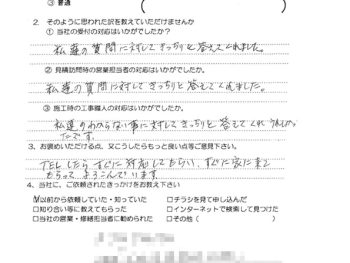 ③ 普通
2. そのように思われた訳を教えていただけませんか
① 当社の受付の対応はいかがでしたか?
私達の質問に対してきっちりと答えてくれました。
② 見積訪問時の営業担当者の対応はいかがでしたか。
私達の質問に対してきっちりと答えてくれました。
③ 施工時の工事職人の対応はいかがでしたか。
私達のわからない事に対してきっちりと答えてくれ うれしかっ
たです。
3. お褒めいただける点、又こうしたらもっと良い点等ご意見下さい。
TELしたらすぐに対応してもらい、すぐに家に来て
もらって よろこんでいます
4. 当社に、ご依頼されたきっかけをお教え下さい
☑以前から依頼していた・知っていた □チラシを見て申し込んだ
□知り合い等に教えてもらった □インターネットで検索して見つけた
□当社の営業・修繕担当者に勧められた □その他(